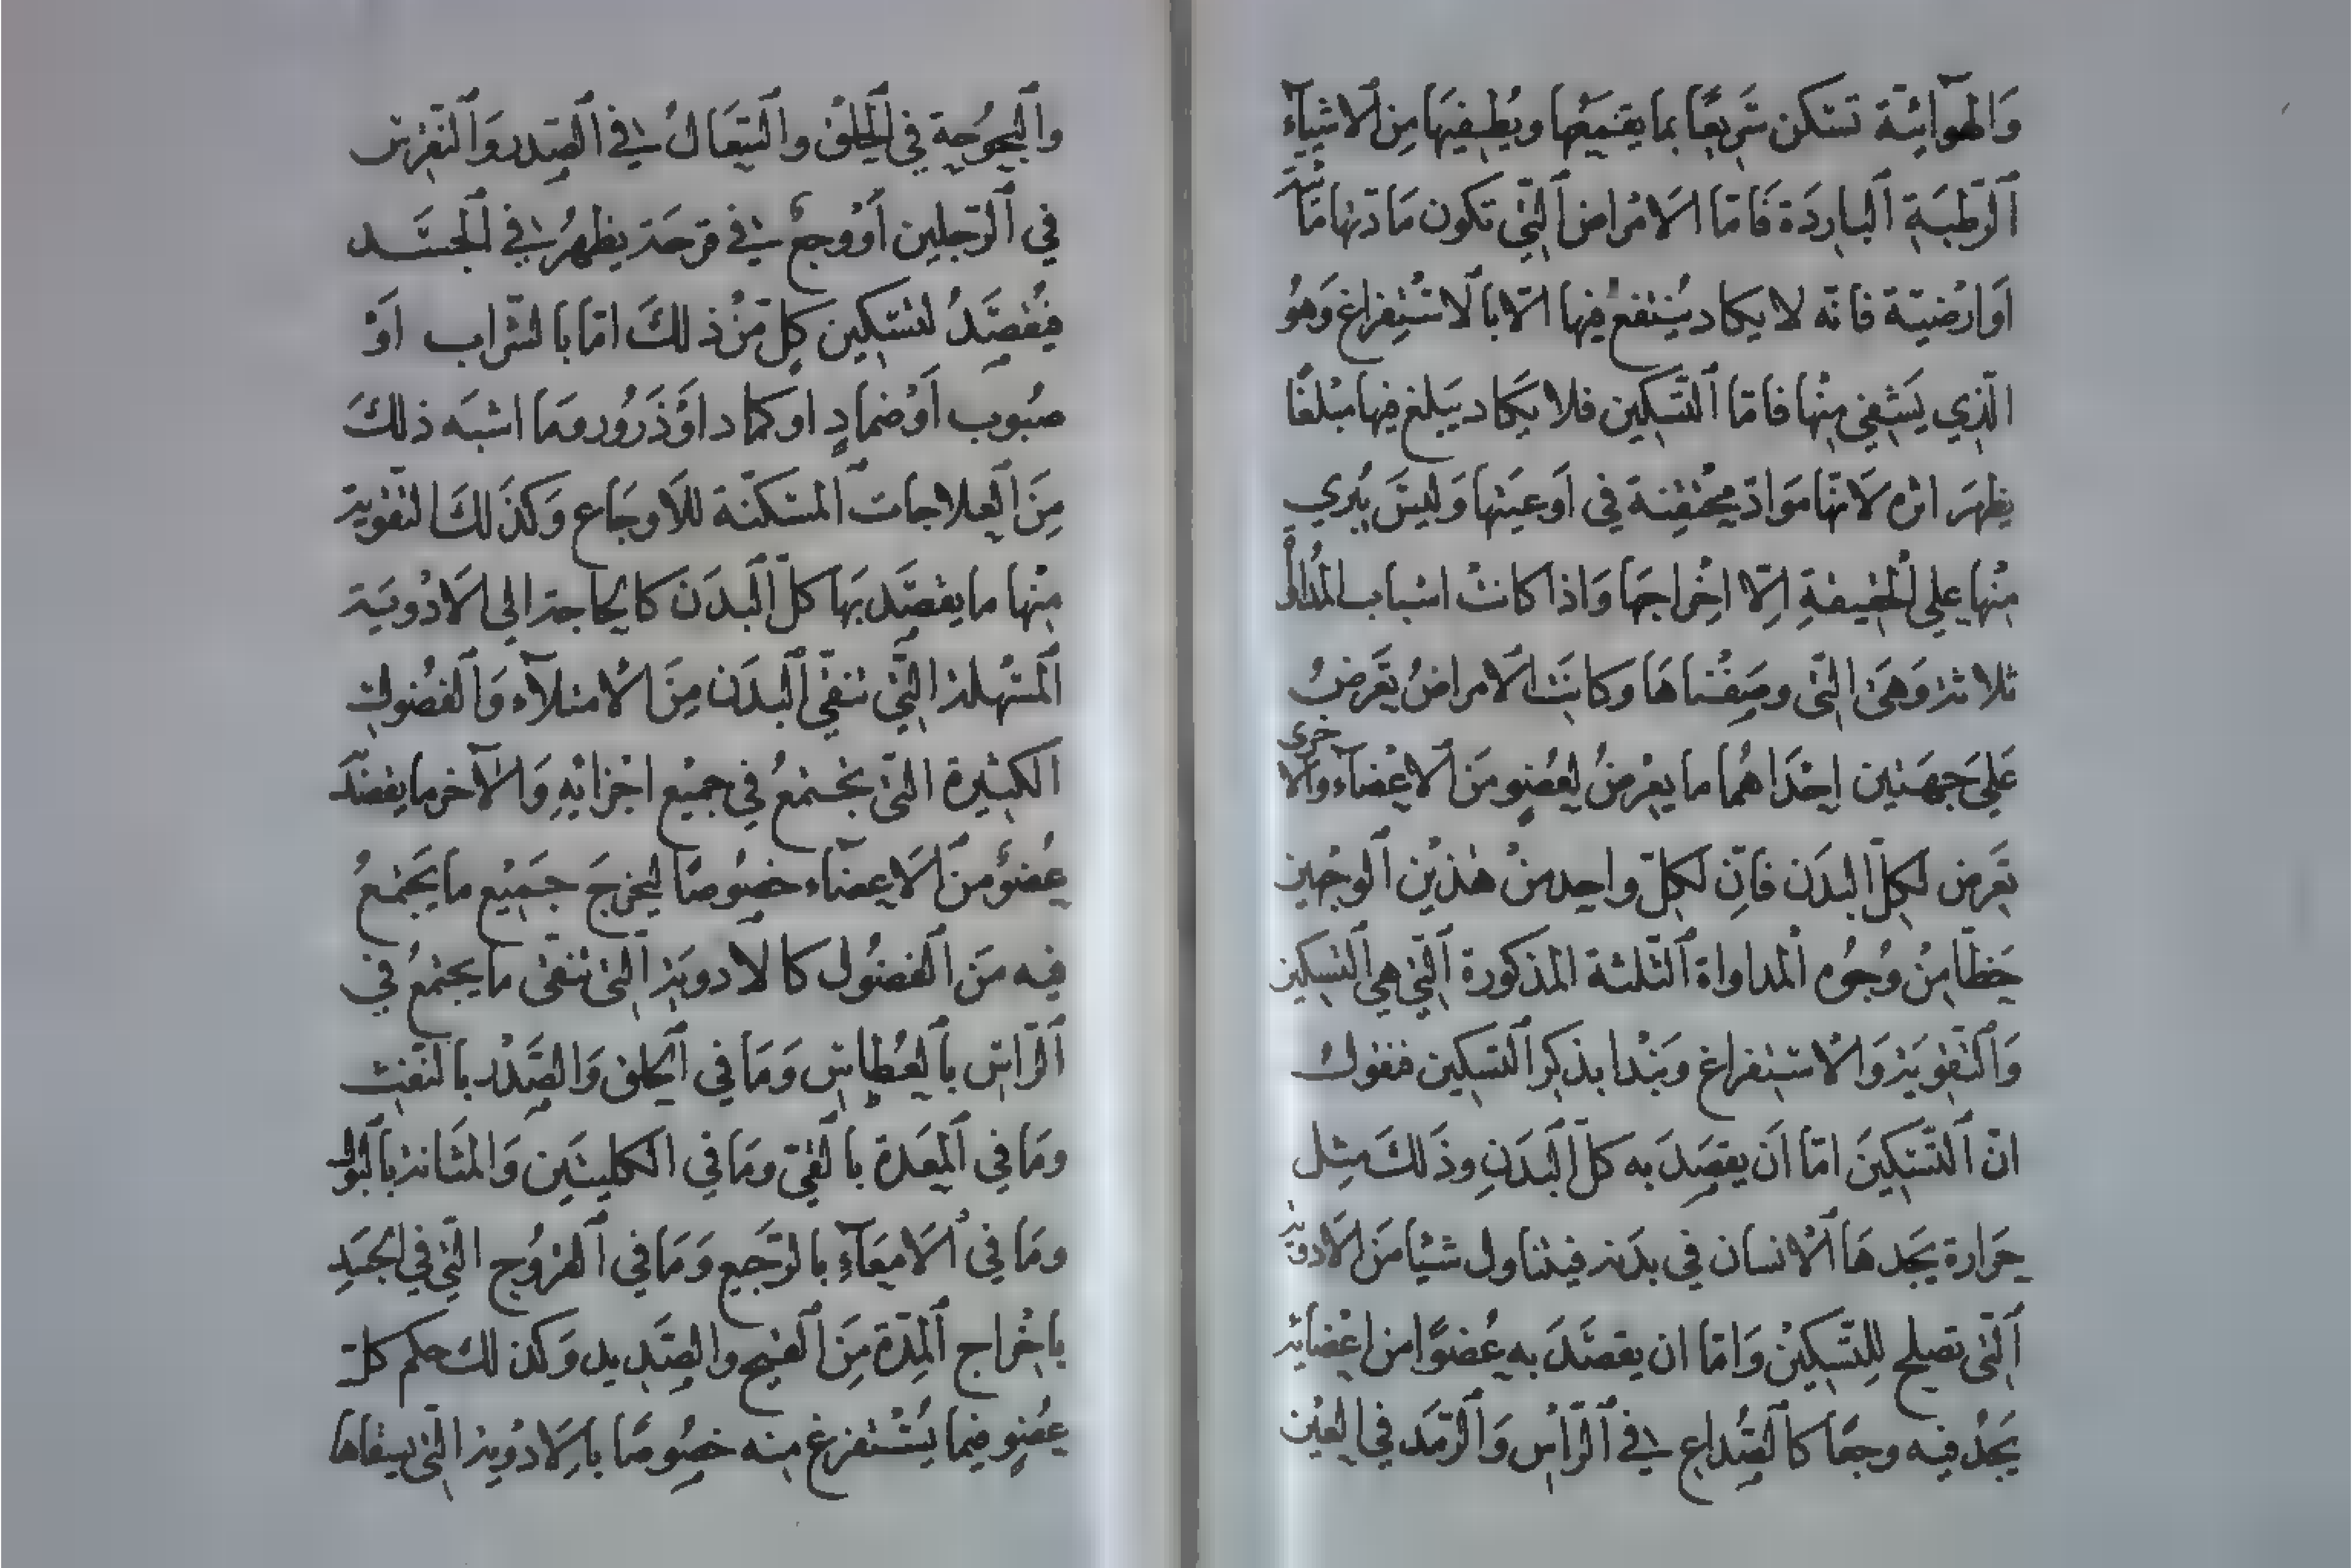 وَالهوَآئيّة تسْكن سَرِيعًا بما يقمَعُها ويُطفيهَا مِن الاشيآءِ
اَلرّطبَةِ اَلبارِدَة فَامّا الاَمْراض اَلتّي تكون مَادتها مَائيّة
اَوارْضيّة فانّه لا يكاد يُنتفع فيها الاّ باَلاسْتِفراغ وَهوُ
الّذِي يَشفي مِنْها فامّا اَلتّسكين فلا يكَاد يَبلغ فيها مبْلغًا
يظهَر اثره لاَنّها مَوادّ محتْقِنة في اَوعيَتها وَليسَ يُبري
مِنْها علي اَلْحقيقةِ اِلاّ اخِْراجهَا وَاذا كانتْ اسْباب المُدَاواة
ثلاثة وَهيَ التّي وصِفْناهَا وكانَت اَلامراضُ تَعَرضُ
عَليَ جهَتين اِحْدَاهُما ما يعْرضُ لِعُضوٍ مَن اَلاعْضآء وَالاخرى
تعَرض لكِلّ اَلبدَن فَانِّ لكلّ واحِد منْ هٰذيْن اَلوجْهين
حَظّا مِنْ وُجُوه اَلمداواة اَلثّلثة المذكورة اَلتّي هي اَلتسكين
وَاَلتّقويَة وَاَلاسْتِفراغ وَنبْدا بذكِر اَلتسكين فنقول
انّ اَلتّسْكِينَ امّا اَن يقصَدَ به كلّ اَلبَدَنِ وذَلكَ مثِل
حَرارة يجَدهَا اَلاْنسان في بدَنه فيتناول شيْا مَن اَلاَدوية
اَلتّى تصلح لِلتّسكينْ وَامّا ان يقصَدَ به عُضوًا من اعْضائه
يَجدُ فيه وجعًا كاَلصُّداع في اَلرّاسْ وَاَلرّمَد في اَلعَيْن
واَلبحُوحة في اَلحَلق واَلسّعَالُ في اَلصّدر وَاَلنّقرِس
في اَلرّجلين اَوْ وجعٌ في قرحَة يظهرُ في اَلجسَد
فيُقصَدُ لتسْكِين كلِّ مَنْ ذلكَ امّا باَلشّراب اَوْ
صبُوب اَوْضمادٍ اوكماد اوَْ ذَرُور ومَا اشبَه ذلكَ
مِنَ اَلعلاجات اَلمسَكنّة للاَوجَاع وَكذَلكَ اَلتقوية
مِنْها ما يقصَد بهَا كلّ اَلبدَن كالحاجة الي اَلاَدْويَة
اَلمسْهلة التّي تنقي اَلبدَن مِنَ اَلامتلآء وَاَلفضُول
الكثيرة التّى تجتمعُ في جميْع اجْزائهِ وَالآخر ما يقصَد
عُضوٌ مَن اَلاَعضآء خصُوصًا ليُخرجَ جميْع ما يَجتمعُ
فيه مَن اَلفضُول كالاَدوية اَلتي تنقى ما يجتمعُ في
اَلرّاسِ باَلعُطاسِ وَمَا في اَلحلق وَالصَّدْر باَلنّفث
ومَا في اَلمِعَدة باَلقيّ ومَا في الكليتَين وَالمثَانة باَلبُول
ومَا في اَلاَمعَآءِ بالرّجَيعِ وَمَا في اَلقرُوح التّي في اَلجسَدِ
باخْراج اَلمِدّة مَِن اَلقيح والصّدَيد وَكذلك حكم كلّ
عُضوٍ فيما يُسْتفرغ مِنه خصُوصًا باِلاَدْوية التّي سِقاها